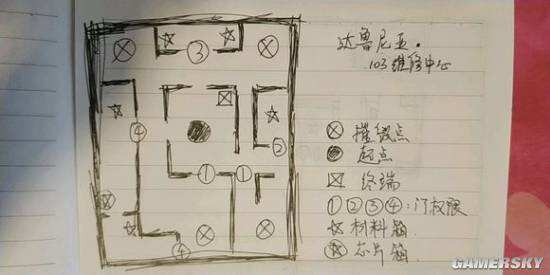 达鲁尼亚.
103维修中心
③
④
②
①
①
④
摧毁点
起点
终端
①②③④:门权限
材料箱
芯片箱
GAMERSKY